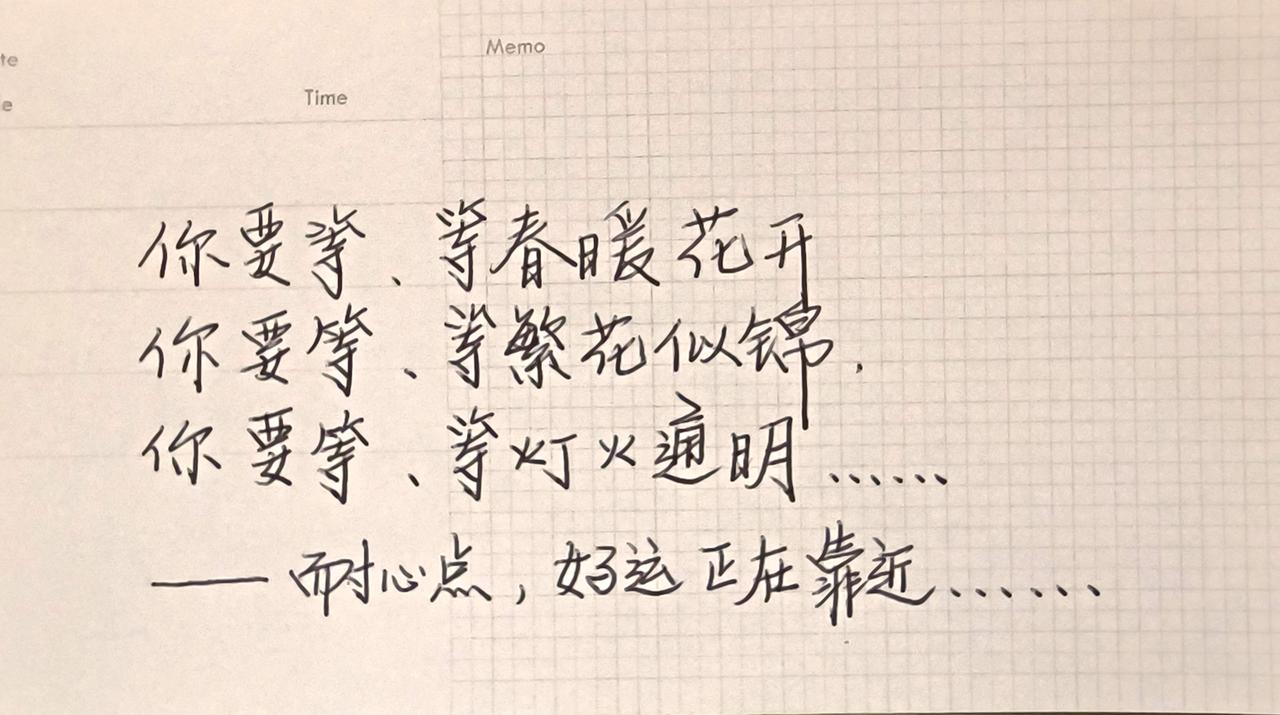 te
Memo
e
Time
你要等、等春暖花开
你要等、等繁花似锦.
你要等、等灯火通明……
——耐心点，好运正在靠近……